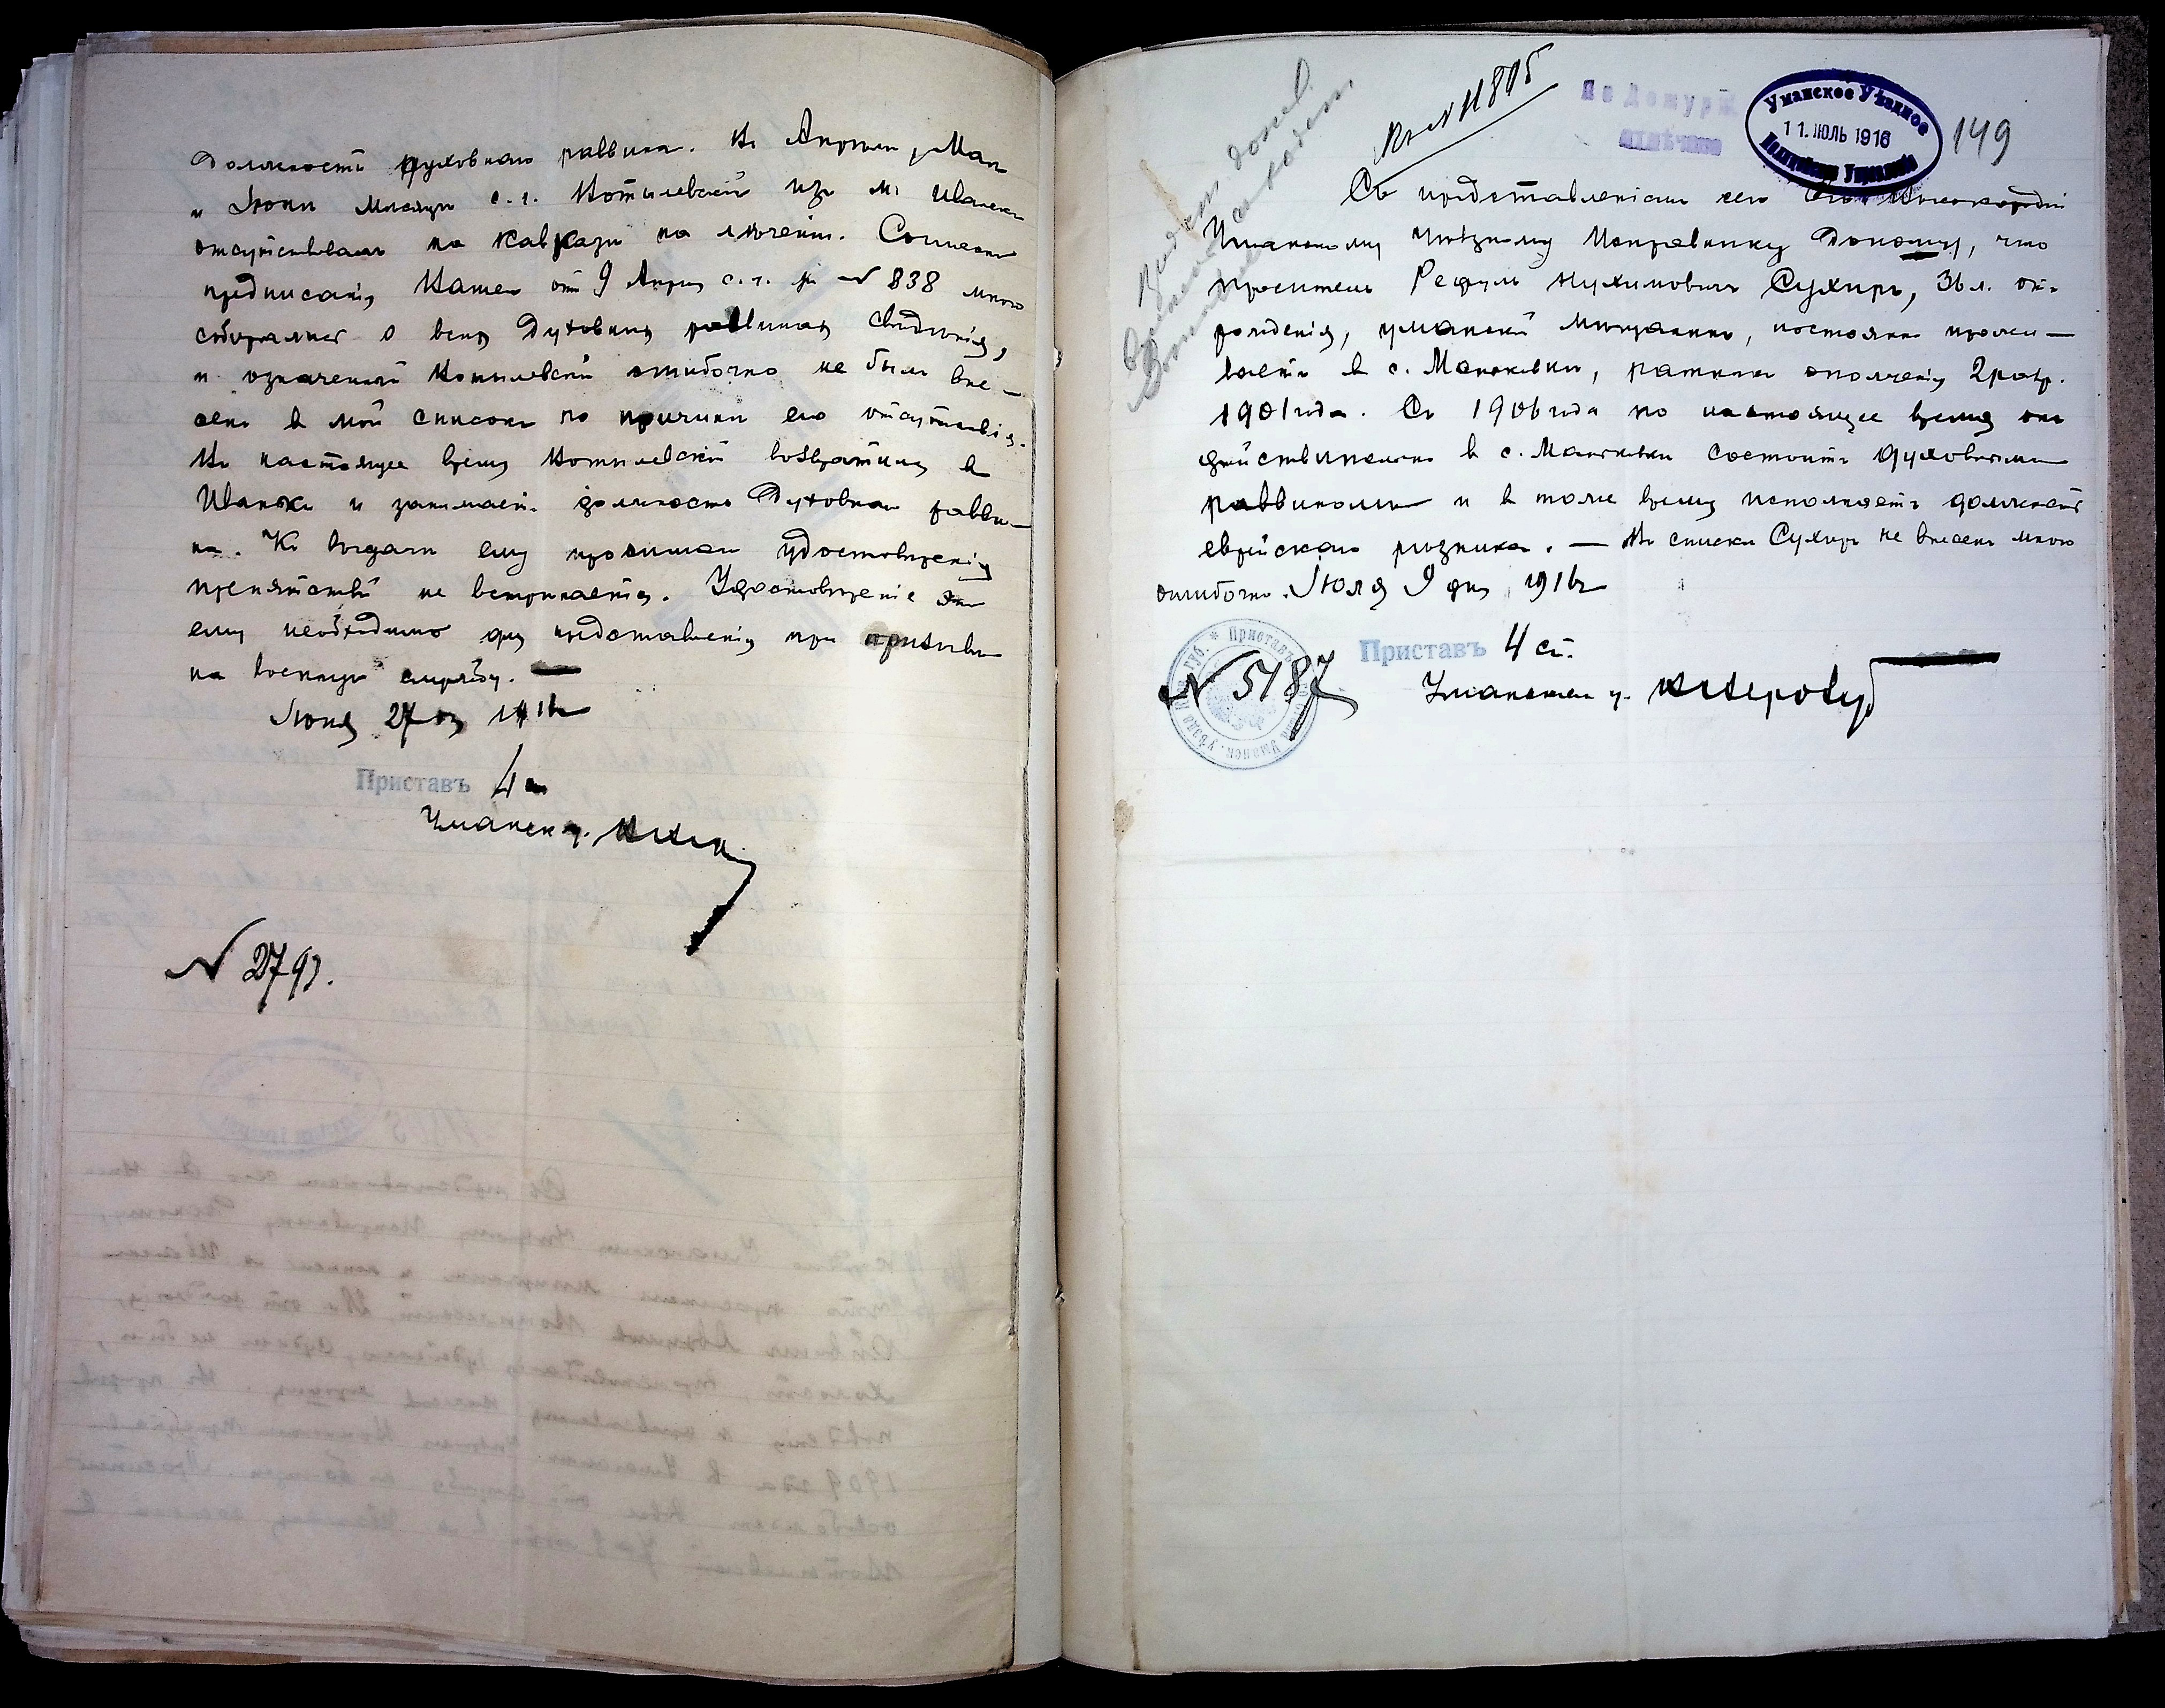 должности духовнаго раввина. Въ Апрѣлѣ, Маѣ
и Іюнѣ мѣсяцѣ с. г. Копылевскій изъ м. Иваньки
отсутствовалъ на Кавказѣ на лѣченіи. Согласно
предписанія Вашего отъ 9 Апрѣля с. г. за № 838 мною
собирались о всѣхъ Духовныхъ раввинахъ свѣдѣнія,
и означенный Копылевскій ошибочно не былъ вне-
сенъ въ мой списокъ по причинѣ его отсутствія.
Въ настоящее время Копылевскій возвратился въ
Иваньки и занимаетъ должность Духовнаго равви-
на. Къ выдачѣ ему просимаго удостовѣренія
препятствій не встрѣчается. Удостовѣреніе это
ему необходимо для представленія при призывѣ
на военную службу.
Іюня 27 дня 1916 г.
Приставъ 4 ст.
Уманск. у.
№ 2793.
Вх. № 11805
По Дежурн.
отмѣчено
Уманское Уѣздное
11. ІЮЛЬ 1916
Полицейское Управленіе
149
Съ представленіемъ сего Его Высокородію
Уманскому Уѣздному Исправнику Доношу, что
проситель Рефуль Нухимовичъ Сухиръ, 36 л. отъ
рожденія, уманскій мѣщанинъ, постоянно прожи-
ваетъ въ с. Маньковкѣ, ратникъ ополченія 2 разр.
1901 года. Съ 1906 года по настоящее время онъ
дѣйствительно въ с. Маньковкѣ состоитъ духовнымъ
раввиномъ и въ тоже время исполняетъ должность
еврейскаго рѣзника. — Въ списки Сухиръ не внесенъ мною
ошибочно. Іюля 9 дня 1916 г.
Приставъ 4 ст.
№ 5187
Уманскаго у.